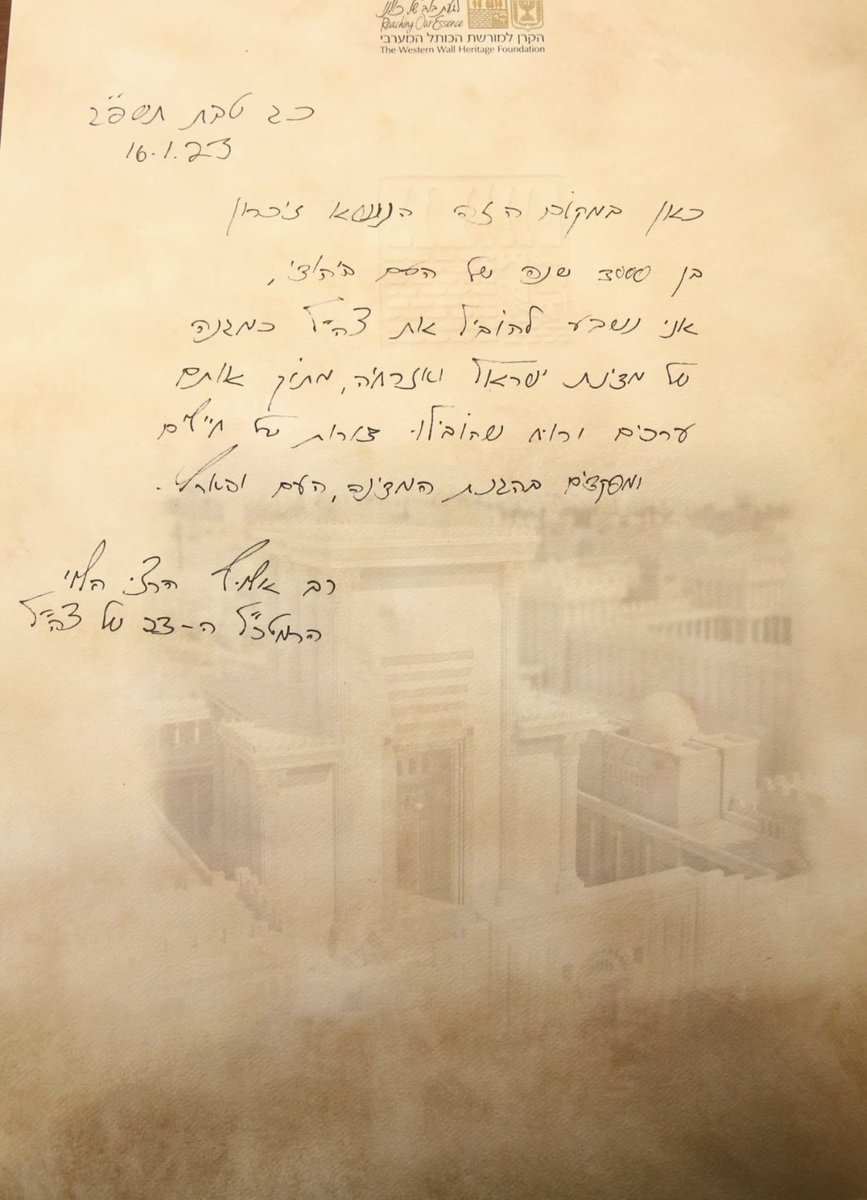 לגעת בלב של כולנו
Reaching Our Essence
הקרן למורשת הכותל המערבי
The Western Wall Heritage Foundation
כג טבת תשפ"ג
16.1.23
כאן במקום הזה הנושא זיכרון
בן 3000 שנה של העם היהודי,
אני נשבע להוביל את צה"ל כמגנה
של מדינת ישראל ואזרחיה, מתוך אותם
ערכים ורוח שהובילו דורות של חיילים
ומפקדים בהגנת המדינה, העם והארץ.
רב אלוף הרצי הלוי
הרמטכ"ל ה-23 של צה"ל